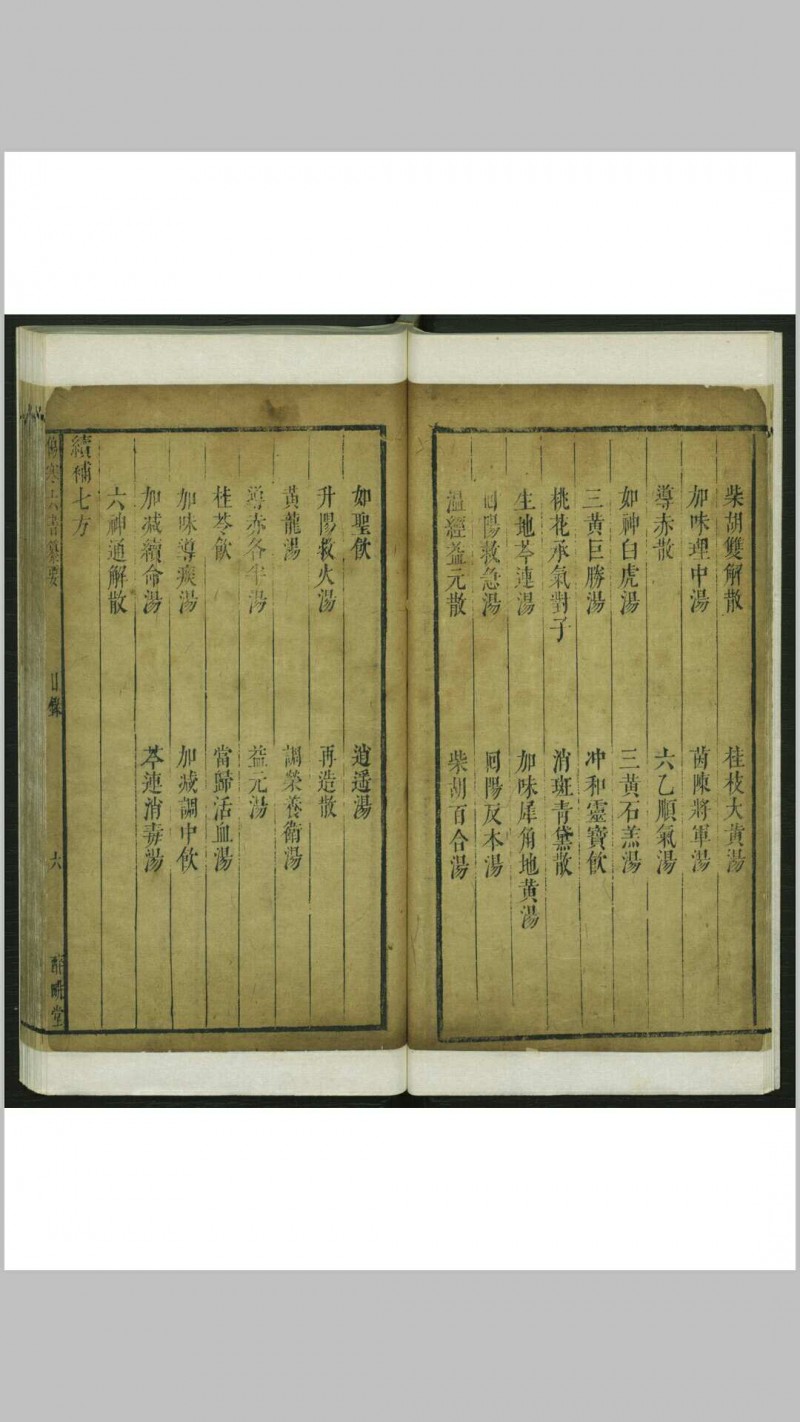 柴胡雙解散 桂枝大黄湯
加味理中湯 茵陳將軍湯
導赤散 六乙順氣湯
如神白虎湯 三黄石羔湯
三黄巨勝湯 冲和靈寶飲
桃花承氣對子 消斑青黛散
生地芩連湯 加味犀角地黄湯
回陽救急湯 回陽反本湯
温經益元散 柴胡百合湯
如聖飲 逍遥湯
升陽救火湯 再造散
黄龍湯 調榮養衛湯
導赤各半湯 益元湯
桂苓飲 當歸活血湯
加味導痰湯 加減調中飲
加減續命湯 芩連消毒湯
六神通解散
續補七方
傷寒六書纂要 目錄 六 醉畊堂